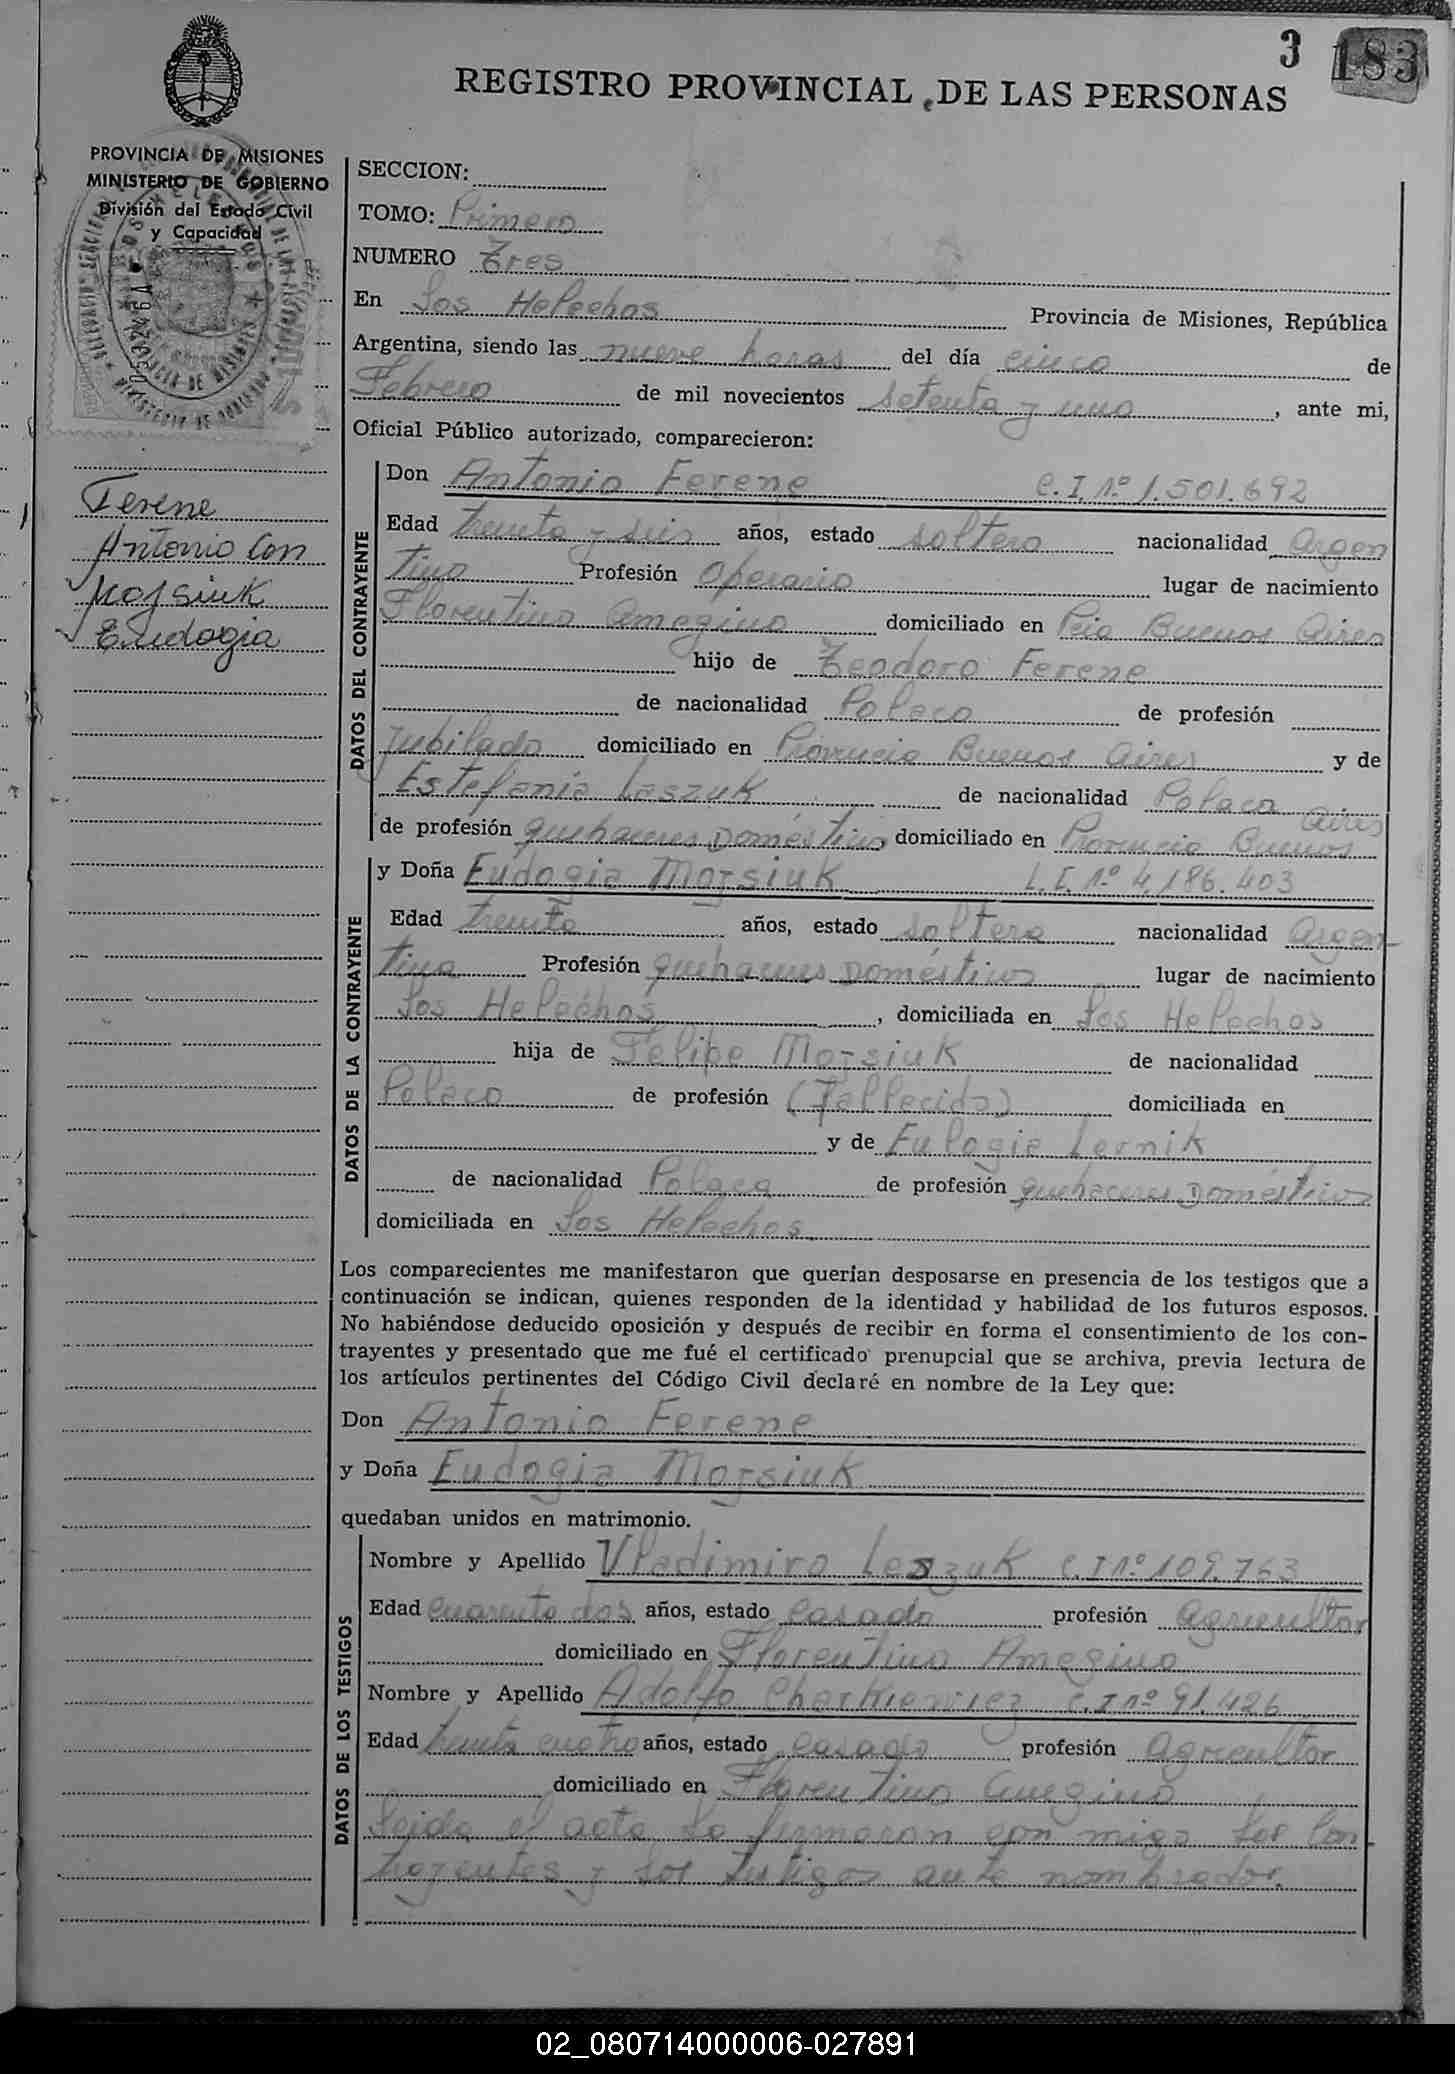 3 183
REGISTRO PROVINCIAL DE LAS PERSONAS
PROVINCIA DE MISIONES
MINISTERIO DE GOBIERNO
División del Estado Civil
y Capacidad
Ferene
Antonio Con
Morsiuk
Eudogia
SECCION:
TOMO: Primero
NUMERO Tres
En Los Helechos Provincia de Misiones, República
Argentina, siendo las nueve horas del día cinco de
Febrero de mil novecientos setenta y uno, ante mi,
Oficial Público autorizado, comparecieron:
DATOS DEL CONTRAYENTE
Don Antonio Ferene C.I.nº 1.501.692
Edad treinta y seis años, estado soltero nacionalidad Argen
tino Profesión Operario lugar de nacimiento
Florentino Amegino domiciliado en Pcia Buenos Aires
hijo de Teodoro Ferene
de nacionalidad Polaco de profesión
Jubilado domiciliado en Provincia Buenos Aires y de
Estefania Laszuk de nacionalidad Polaca
de profesión quehaceres Domésticos domiciliado en Provincia Buenos Aires
DATOS DE LA CONTRAYENTE
y Doña Eudogia Morsiuk L.I.nº 4.186.403
Edad treinta años, estado soltera nacionalidad Argen-
tina Profesión quehaceres Domésticos lugar de nacimiento
Los Helechos, domiciliada en Los Helechos
hija de Felipe Morsiuk de nacionalidad
Polaco de profesión (Fallecido) domiciliada en
y de Eulogia Lernik
de nacionalidad Polaca de profesión quehaceres Domésticos
domiciliada en Los Helechos
Los comparecientes me manifestaron que querían desposarse en presencia de los testigos que a
continuación se indican, quienes responden de la identidad y habilidad de los futuros esposos.
No habiéndose deducido oposición y después de recibir en forma el consentimiento de los con-
trayentes y presentado que me fué el certificado prenupcial que se archiva, previa lectura de
los artículos pertinentes del Código Civil declaré en nombre de la Ley que:
Don Antonio Ferene
y Doña Eudogia Morsiuk
quedaban unidos en matrimonio.
DATOS DE LOS TESTIGOS
Nombre y Apellido Vladimiro Leszuk C.I nº 109.763
Edad cuarenta dos años, estado Casado profesión Agricultor
domiciliado en Florentino Amegino
Nombre y Apellido Adolfo Charkiewicz C.I nº 91.426
Edad treinta cuatro años, estado Casado profesión Agricultor
domiciliado en Florentino Amegino
Leida el acta la firmaron con migo los Con-
trayentes y los testigos ante nombrados.
02_080714000006-027891